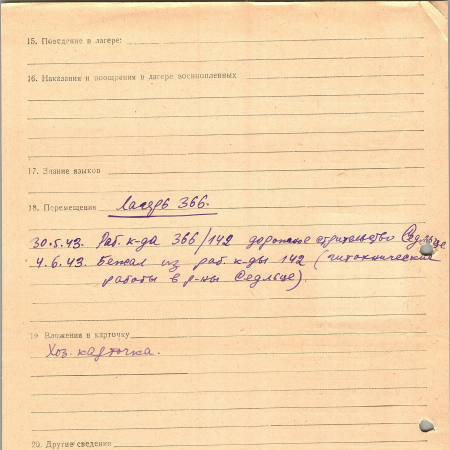 15. Поведение в лагере:
16. Наказания и поощрения в лагере военнопленных
17. Знание языков
18. Перемещения Лагерь 366.
30.5.43. Раб. к-да 366/142 дорожное стрительство Седльце
4.6.43. Бежал из раб. к-ды 142 (питокнические
работы в р-ны Седльце).
19 Вложения в карточку
Хоз. карточка.
20. Другие сведения